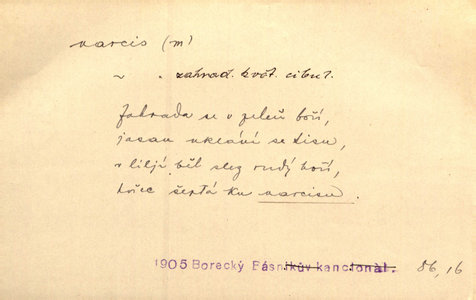 narcis (m)
~ . zahrad. květ. cibul.
Zahrada se v zeleň boří,
jasan uklání se tisu,
v liljí běl slez rudý hoří,
hořec šeptá ku narcisu.
1905 Borecký Básníkův kancionál. 86, 16